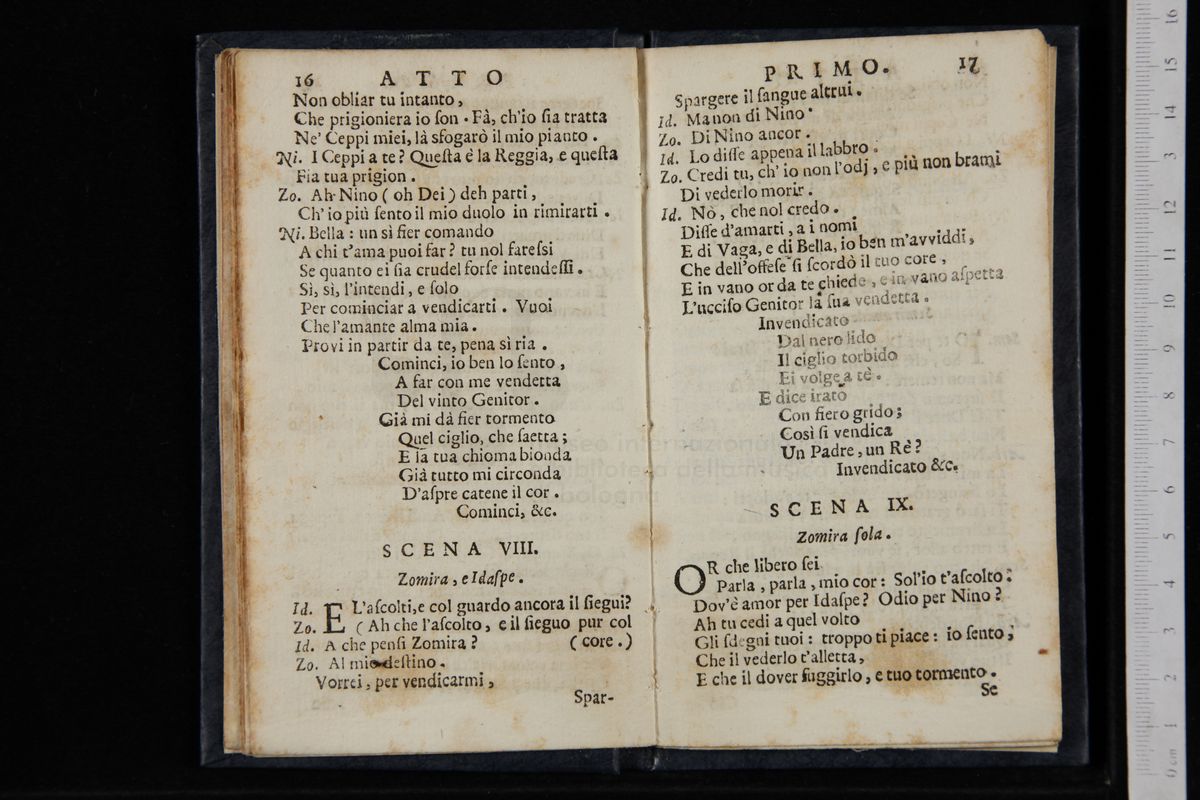 16 ATTO
Non obliar tu intanto,
Che prigioniera io ſon. Fà, ch'io ſia tratta
Ne' Ceppi miei, là sfogarò il mio pianto.
Ni. I Ceppi a te? Queſta è la Reggia, e queſta
Fia tua prigion.
Zo. Ah Nino (oh Dei) deh parti,
Ch'io più ſento il mio duolo in rimirarti.
Ni. Bella: un sì fier comando
A chi t'ama puoi far? tu nol fareſsi
Se quanto ei ſia crudel forſe intendeſſi.
Sì, sì, l'intendi, e ſolo
Per cominciar a vendicarti. Vuoi
Che l'amante alma mia.
Provi in partir da te, pena sì ria.
Cominci, io ben lo ſento,
A far con me vendetta
Del vinto Genitor.
Già mi dà fier tormento
Quel ciglio, che ſaetta;
E la tua chioma bionda
Già tutto mi circonda
D'aſpre catene il cor.
Cominci, &c.
SCENA VIII.
Zomira, e Idaſpe.
Id. EL'aſcolti, e col guardo ancora il ſiegui?
Zo. (Ah che l'aſcolto, e il ſieguo pur col
Id. A che penſi Zomira? (core.)
Zo. Al mio deſtino.
Vorrei, per vendicarmi,
Spar-
PRIMO. 17
Spargere il ſangue altrui.
Id. Ma non di Nino.
Zo. Di Nino ancor.
Id. Lo diſſe appena il labbro.
Zo. Credi tu, ch'io non l'odj, e più non brami
Di vederlo morir.
Id. Nò, che nol credo.
Diſſe d'amarti, a i nomi
E di Vaga, e di Bella, io ben m'avviddi,
Che dell'offeſe ſi ſcordò il tuo core,
E in vano or da te chiede, e in vano aſpetta
L'ucciſo Genitor la ſua vendetta.
Invendicato
Dal nero lido
Il ciglio torbido
Ei volge a tè.
E dice irato
Con fiero grido;
Così ſi vendica
Un Padre, un Rè?
Invendicato &c.
SCENA IX.
Zomira ſola.
OR che libero ſei
Parla, parla, mio cor: Sol'io t'aſcolto:
Dov'è amor per Idaſpe? Odio per Nino?
Ah tu cedi a quel volto
Gli ſdegni tuoi: troppo ti piace: io ſento,
Che il vederlo t'alletta,
E che il dover fuggirlo, e tuo tormento.
Se
museo internazionale
biblioteca della musica
bologna